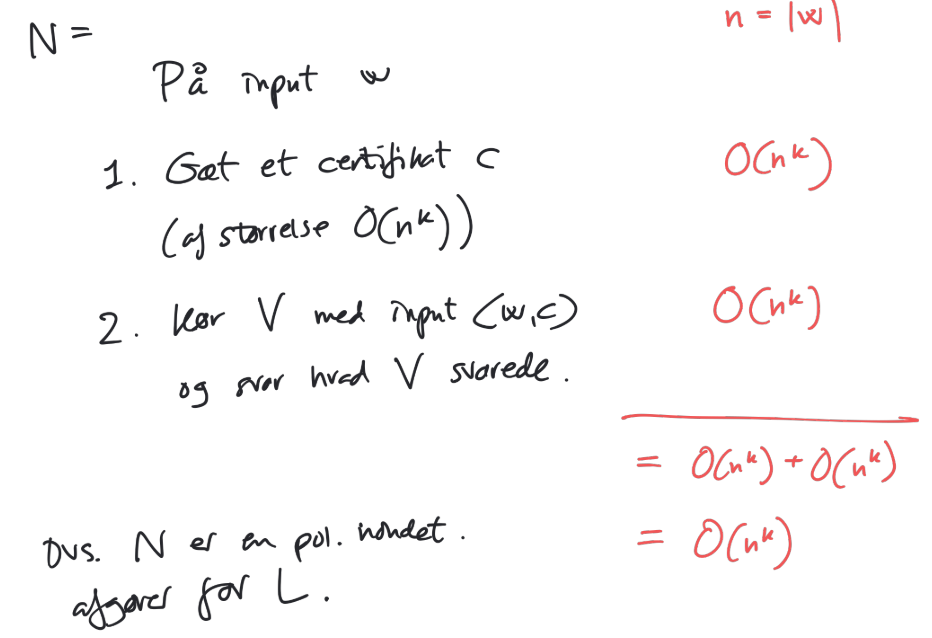 N =
n = |w|
På input w
1. Gæt et certifikat c
O(nᵏ)
(af størrelse O(nᵏ))
2. Kør V med input ⟨w,c⟩
O(nᵏ)
og svar hvad V svarede.
= O(nᵏ) + O(nᵏ)
= O(nᵏ)
Dvs. N er en pol. nondet.
afgører for L.